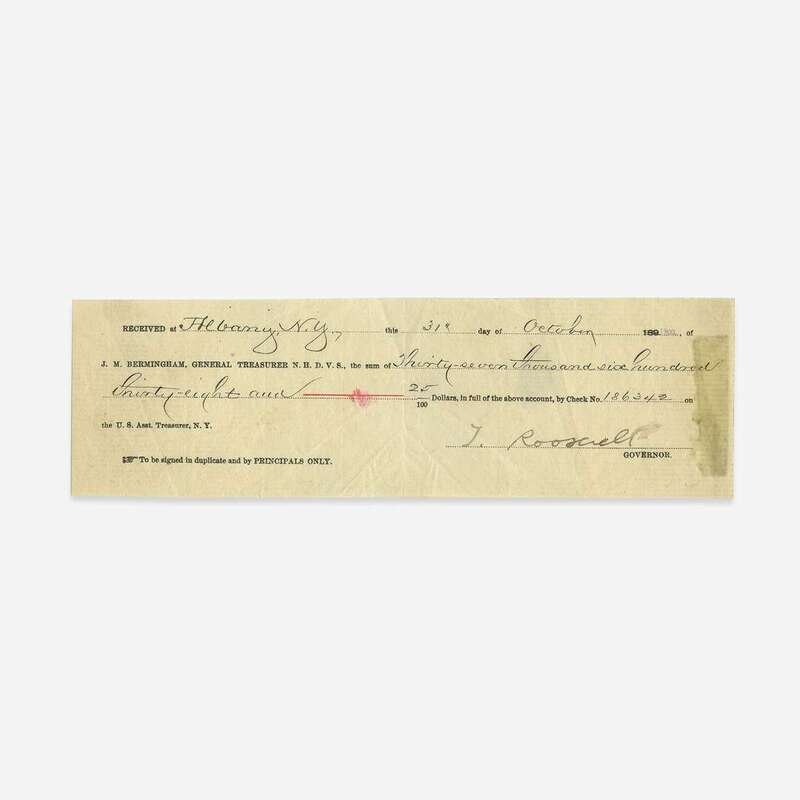 RECEIVED at Albany, N.Y., this 31st day of October 189 1900, of
J. M. BERMINGHAM, GENERAL TREASURER N. H. D. V. S., the sum of Thirty-seven thousand six hundred
thirty-eight and 25/100 Dollars, in full of the above account, by Check No. 186342 on
the U. S. Asst. Treasurer, N. Y.
T. Roosevelt
GOVERNOR.
☞ To be signed in duplicate and by PRINCIPALS ONLY.